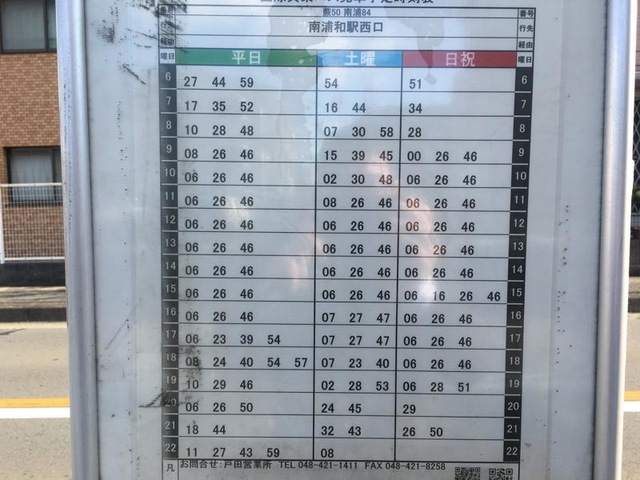 蕨50 南浦84 番号
南浦和駅西口 行先
経由
曜日 平日 土曜 日祝 曜日
6 27 44 59 54 51 6
7 17 35 52 16 44 34 7
8 10 28 48 07 30 58 28 8
9 08 26 46 15 39 45 00 26 46 9
10 06 26 46 02 30 48 06 26 46 10
11 06 26 46 08 26 46 06 26 46 11
12 06 26 46 06 26 46 06 26 46 12
13 06 26 46 06 26 46 06 26 46 13
14 06 26 46 06 26 46 06 26 46 14
15 06 26 46 06 26 46 06 16 26 46 15
16 06 26 46 07 27 47 06 26 46 16
17 06 23 39 54 07 27 47 06 26 46 17
18 08 24 40 54 57 07 23 40 06 26 46 18
19 10 29 46 02 28 53 06 28 51 19
20 06 26 50 24 45 29 20
21 18 44 32 43 26 50 21
22 11 27 43 59 08 22
凡 お問合せ:戸田営業所 TEL 048-421-1411 FAX 048-421-8258